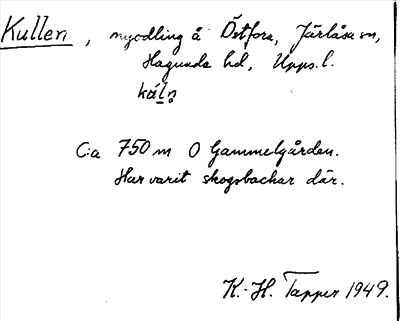 Kullen, nyodling å Östfora, Järlåsa sn,
Hagunda hd, Upps. l.
káḷṇ
C:a 750 m O Gammelgården.
Har varit skogsbackar där.
K.-H. Tapper 1949.